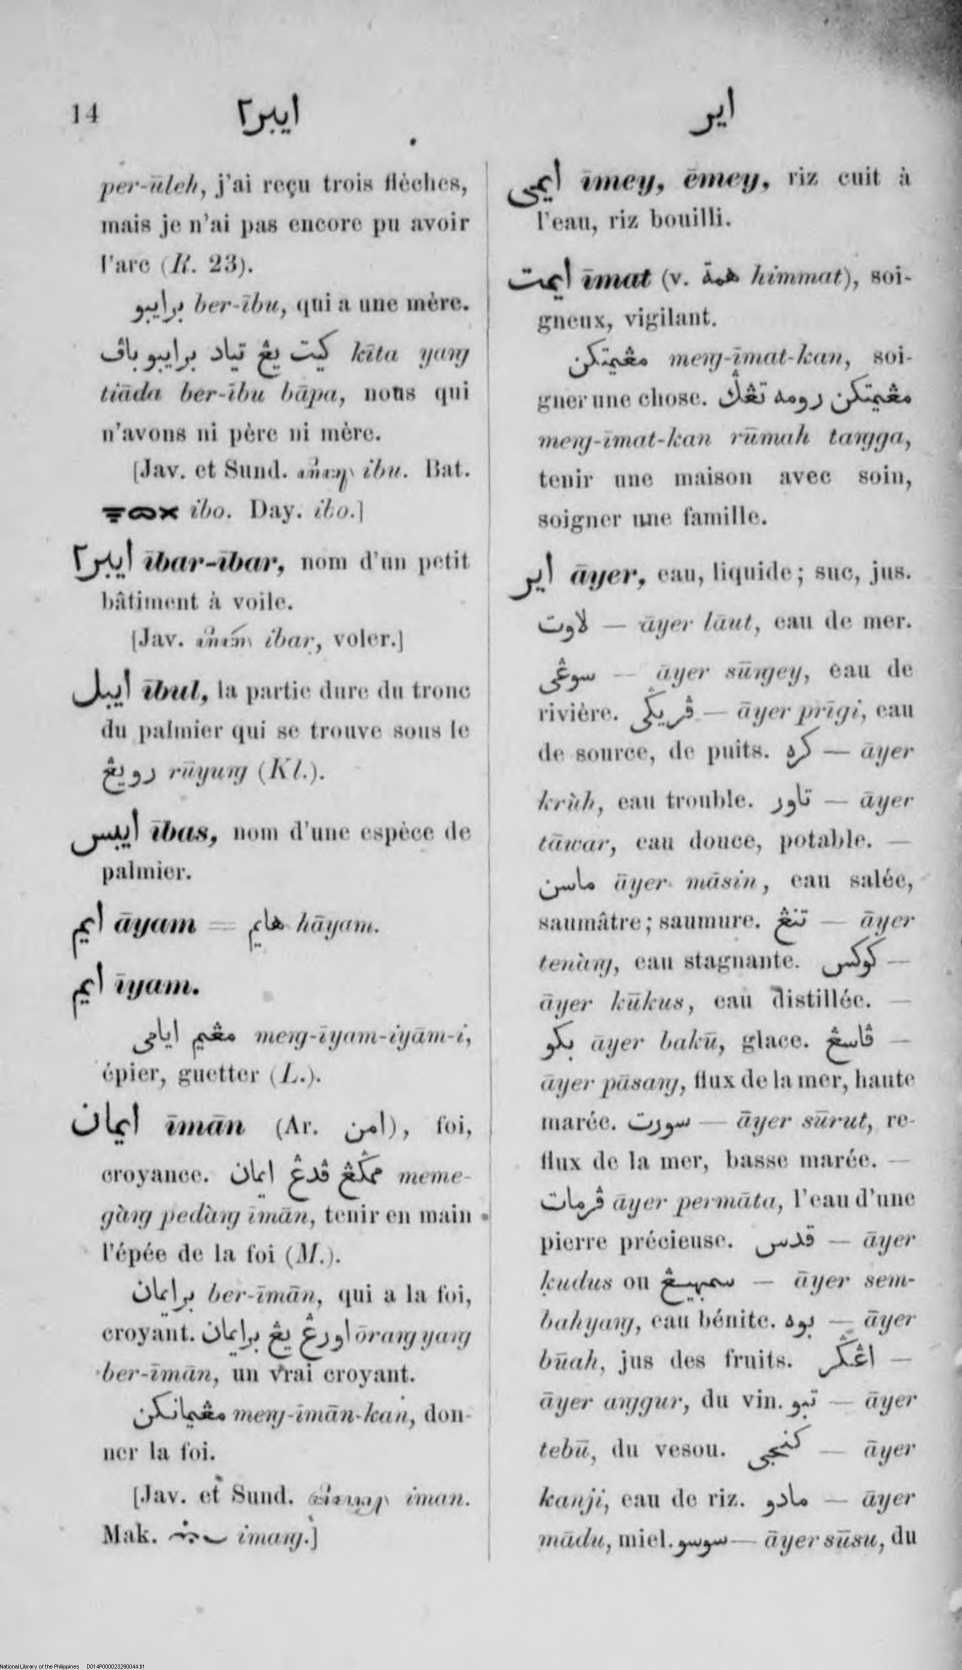 14 ايبر٢ اير
per-ūleh, j'ai reçu trois flèches,
mais je n'ai pas encore pu avoir
l'arc (R. 23).
برايبو ber-ību, qui a une mère.
كيت يڠ تياد برايبو باڤ kīta yaŋg
tiāda ber-ību bāpa, nous qui
n'avons ni père ni mère.
[Jav. et Sund. ibu. Bat.
ibo. Day. ibo.]
ايبر٢ ībar-ībar, nom d'un petit
bâtiment à voile.
[Jav. ibar, voler.]
ايبل ībul, la partie dure du tronc
du palmier qui se trouve sous le
رويڠ rūyuŋg (Kl.).
ايبس ības, nom d'une espèce de
palmier.
ايم āyam = هايم hāyam.
ايم īyam.
مڠيم ايامي meŋg-īyam-iyām-i,
épier, guetter (L.).
ايمان īmān (Ar. امن), foi,
croyance. ممڬڠ ڤدڠ ايمان meme-
gàŋg pedàŋg īmān, tenir en main
l'épée de la foi (M.).
برايمان ber-īmān, qui a la foi,
croyant. اورڠ يڠ برايمان ōraŋg yaŋg
ber-īmān, un vrai croyant.
مڠيمانكن meŋg-īmān-kan, don-
ner la foi.
[Jav. et Sund. iman.
Mak. imaŋg.]
ايمي īmey, ēmey, riz cuit à
l'eau, riz bouilli.
ايمت īmat (v. همة himmat), soi-
gneux, vigilant.
مڠيمتكن meŋg-īmat-kan, soi-
gner une chose. مڠيمتكن رومه تڠڬ
meŋg-īmat-kan rūmah taŋgga,
tenir une maison avec soin,
soigner une famille.
اير āyer, eau, liquide; suc, jus.
لاوت — āyer lāut, eau de mer.
سوڠي — āyer sūŋgey, eau de
rivière. ڤريڬي — āyer prīgi, eau
de source, de puits. كره — āyer
krùh, eau trouble. تاور — āyer
tāwar, eau douce, potable. —
ماسن āyer māsin, eau salée,
saumâtre; saumure. تنڠ — āyer
tenàŋg, eau stagnante. كوكس —
āyer kūkus, eau distillée. —
بكو āyer bakū, glace. ڤاسڠ —
āyer pāsaŋg, flux de la mer, haute
marée. سورت — āyer sūrut, re-
flux de la mer, basse marée. —
ڤرمات āyer permāta, l'eau d'une
pierre précieuse. قدس — āyer
ḳudus ou سمبهيڠ — āyer sem-
bahyaŋg, eau bénite. بوه — āyer
būah, jus des fruits. اڠڬر —
āyer aŋggur, du vin. تبو — āyer
tebū, du vesou. كنجي — āyer
kanji, eau de riz. مادو — āyer
mādu, miel. سوسو — āyer sūsu, du
National Library of the Philippines D014P000023280044.tif